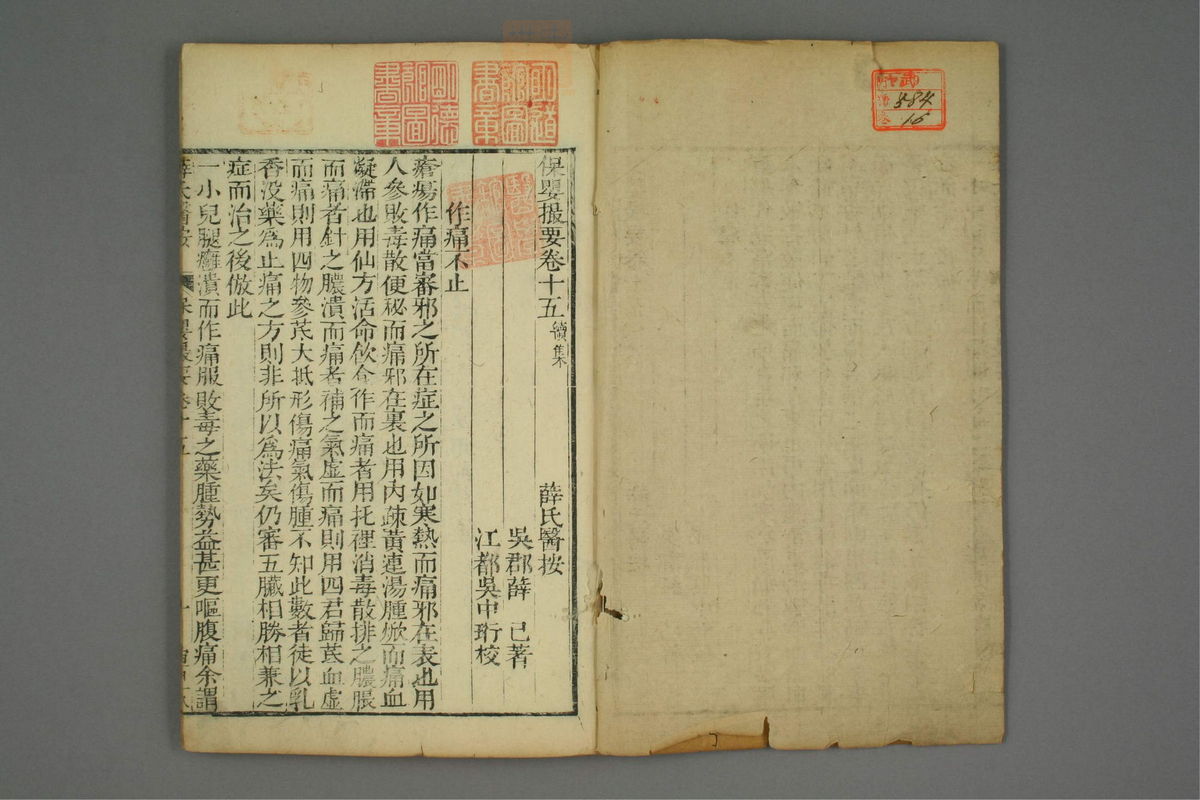 384
16
保嬰撮要卷十五 續集
薛氏醫按
吳郡薛 己著
江都吳中珩校
作痛不止
瘡瘍作痛當審邪之所在症之所因如寒熱而痛邪在表也用
人參敗毒散便秘而痛邪在裏也用內疎黃連湯腫焮而痛血
凝滯也用仙方活命飲作而痛者用托裡消毒散排之膿脹
而痛者針之膿潰而痛者補之氣虛而痛則用四君歸芪血虛
而痛則用四物參芪大抵形傷痛氣傷腫不知此數者徒以乳
香沒藥為止痛之方則非所以為法矣仍審五臟相勝相兼之
症而治之後倣此
一小兒腿癰潰而作痛服敗毒之藥腫勢益甚更嘔腹痛余謂
薛氏醫按 保嬰撮要卷十五